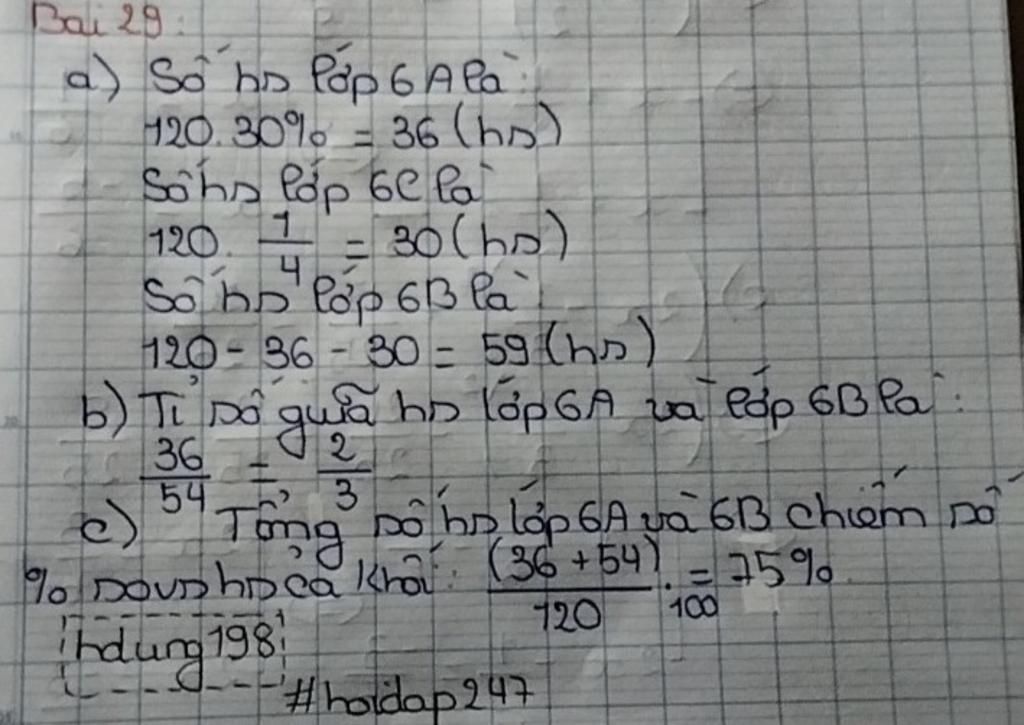 Bài 29:
a) Số hs lớp 6A là:
120.30% = 36 (hs)
Số hs lớp 6C là
120. 1/4 = 30 (hs)
Số hs lớp 6B là:
120 - 36 - 30 = 59 (hs)
b) Tỉ số giữa hs lớp 6A và lớp 6B là:
36/54 = 2/3
c) Tổng số hs lớp 6A và 6B chiếm số
% so vs hs cả khối: (36 + 54)/120 . 100 = 75%
hdung198
#hoidap247